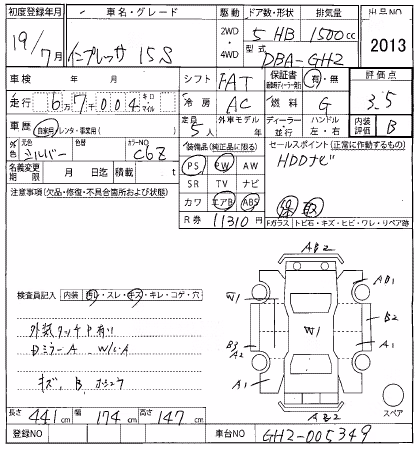 初度登録年月 車名・グレード 駆動 ドア数・形状 排気量 出品NO
19/7月 インプレッサ 15S 2WD・4WD 5 HB 1500cc 2013
型式 DBA-GH2
車検 年 月 シフト FAT 保証書 有・無 評価点
走行 6万7千004キロ マイル 冷房 AC 燃料 G 3.5
車歴 自家用 レンタ・事業用( ) 定員 5人 外車モデル 年 ディーラー 並行 ハンドル 左・右 内装評価 B
外色 元色 シルバー 色替 カラーNO C6Z 装備品(純正品に限る) セールスポイント(正常に動作するもの)
名義変更期限 月 日迄 積載 t PS PW AW HDDナビ
注意事項(欠品・修復・不具合箇所および状態) SR TV ナビ
カワ エアB ABS
R券 11310円 Fガラス トビ石・キズ・ヒビ・ワレ・リペア跡
AB2
検査員記入 内装 スレ・キズ・キレ・コゲ・穴 W1 AB1
外装タッチP有り W1 B2
DミラーA W/C・A B3 A2 A1
キズ、B、 A1
AB2 スペア
長さ 441cm 幅 174cm 高さ 147cm
登録NO 車台NO GH2-005349